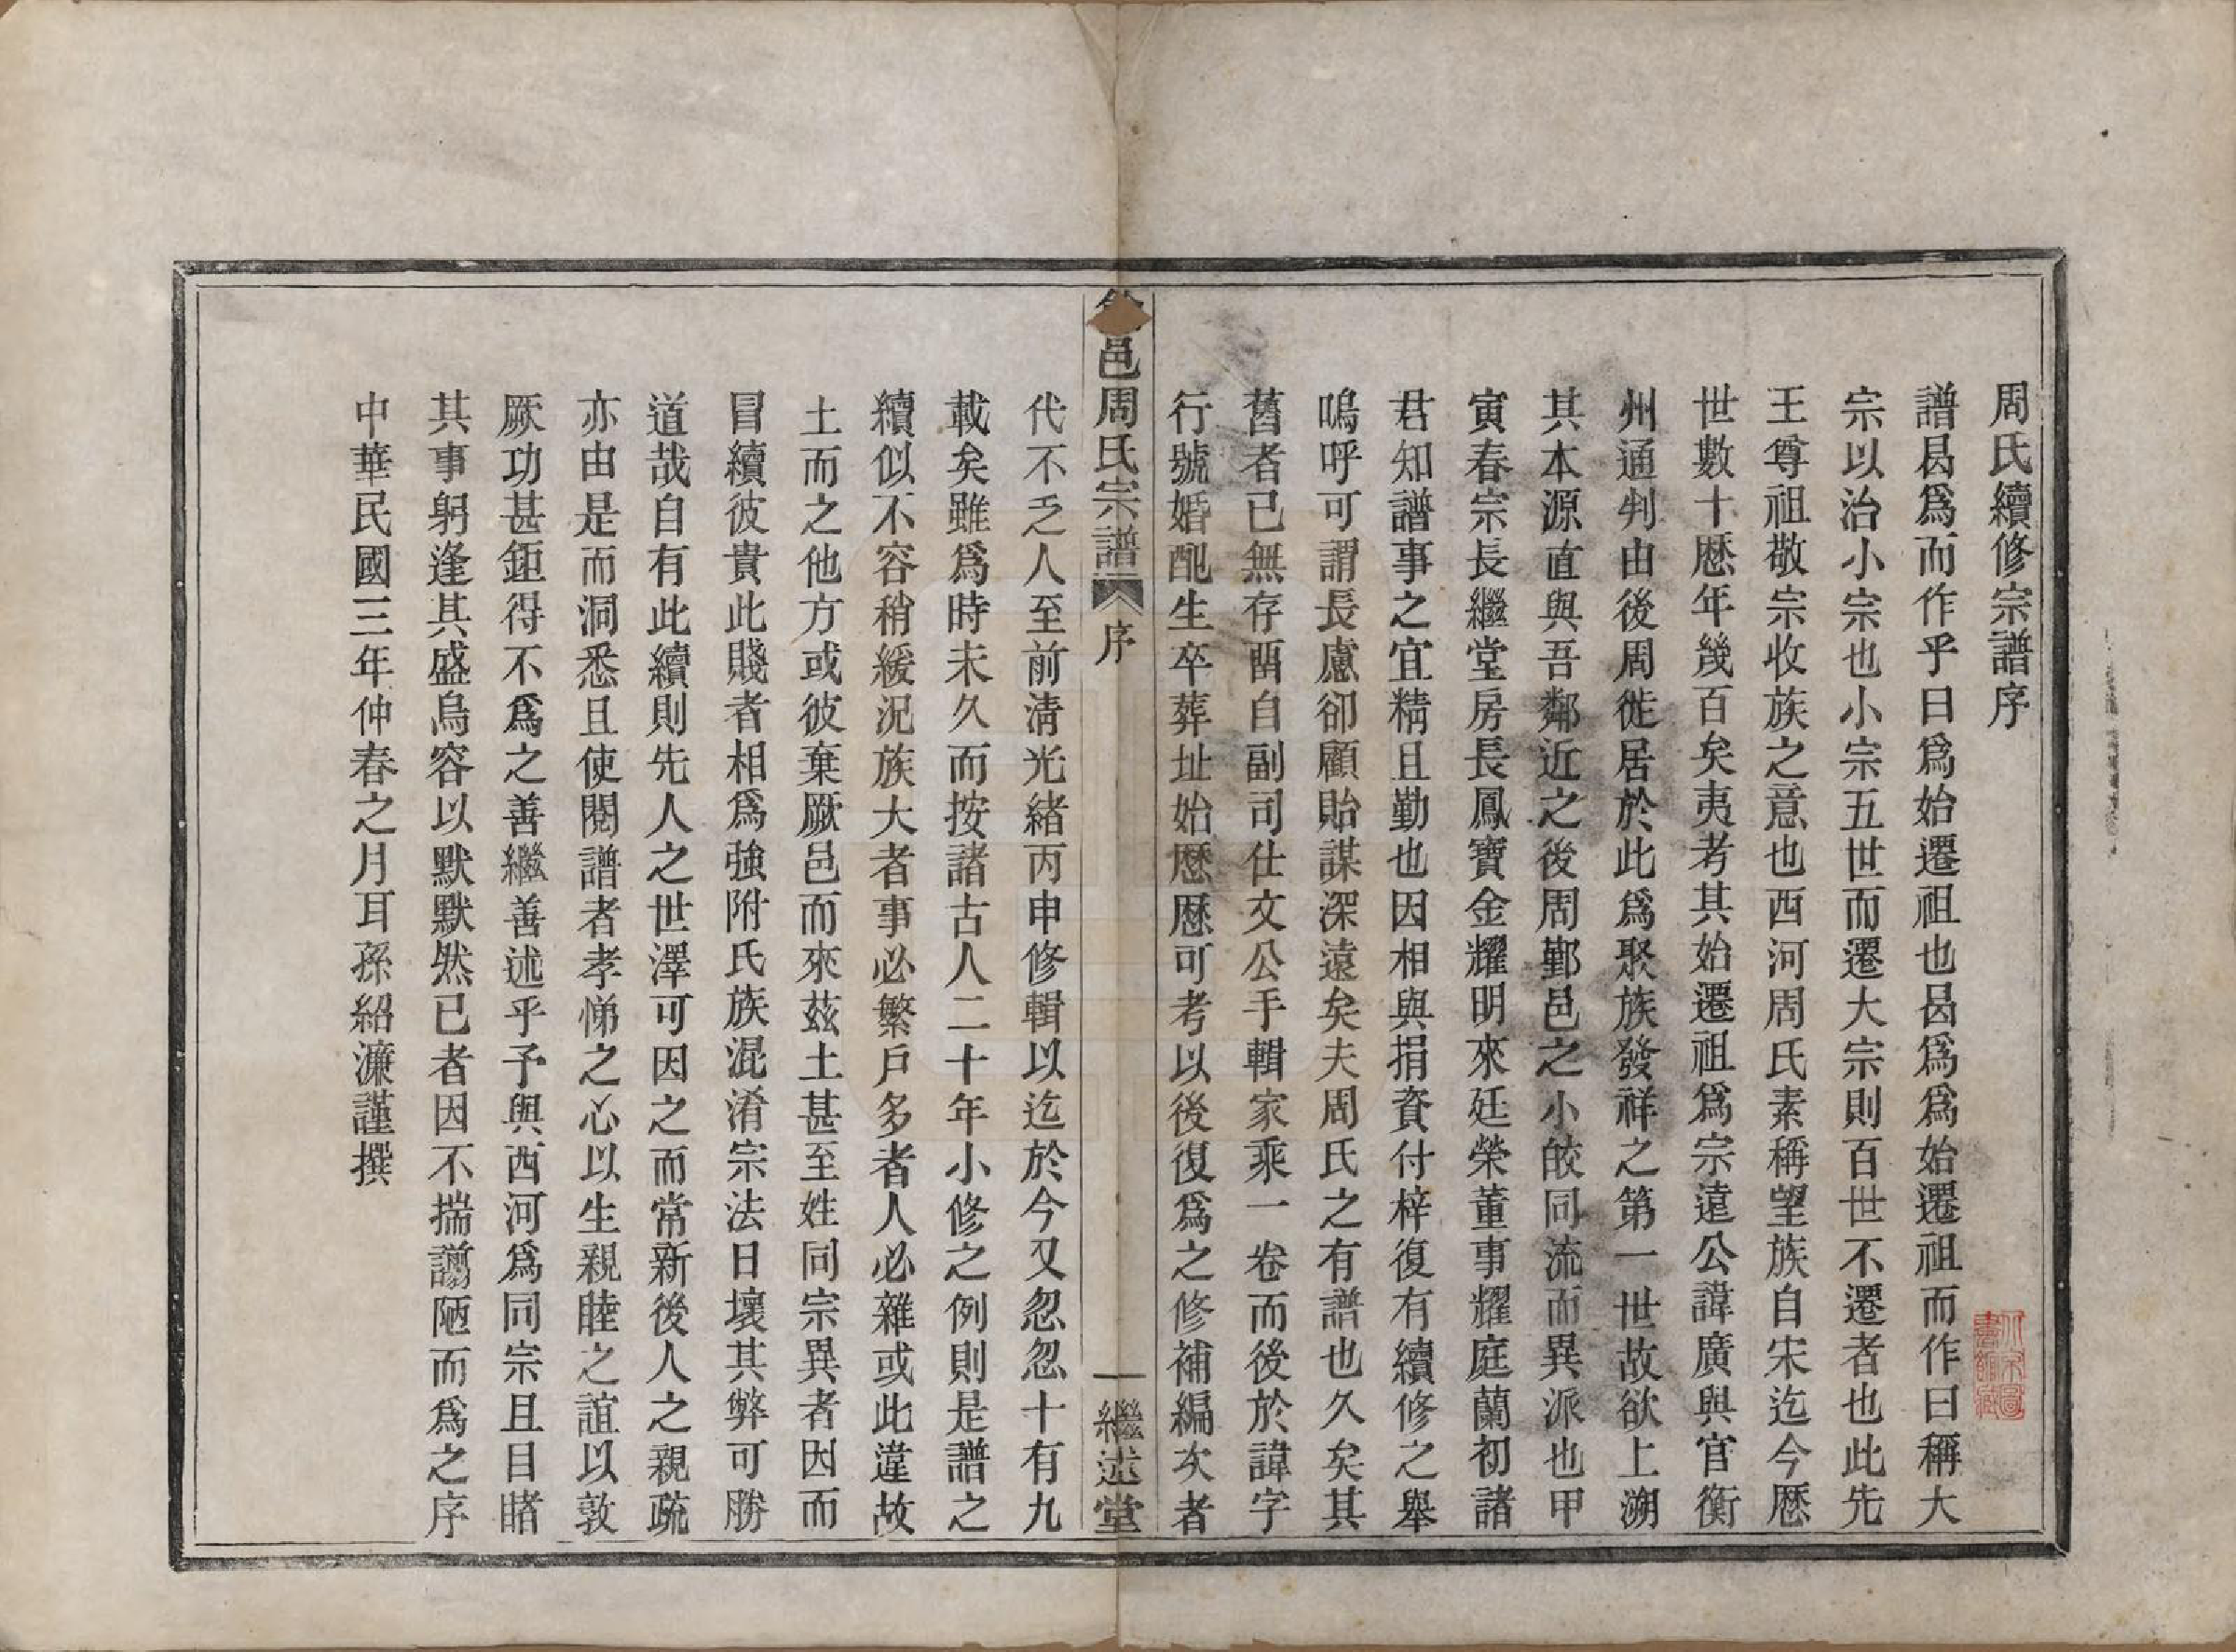 周氏續修宗譜序
譜曷爲而作乎曰爲始遷祖也曷爲爲始遷祖而作曰稱大
宗以治小宗也小宗五世而遷大宗則百世不遷者也此先
王尊祖敬宗收族之意也西河周氏素稱望族自宋迄今歴
世數十歴年幾百矣夷考其始遷祖爲宗遠公諱廣與官衡
州通判由後周徙居於此爲聚族發祥之第一世故欲上溯
其本源直與吾鄰近之後周鄞邑之小皎同流而異派也甲
寅春宗長繼堂房長鳳寶金耀明來廷榮董事耀庭蘭初諸
君知譜事之宜精且勤也因相與捐資付梓復有續修之舉
嗚呼可謂長慮卻顧貽謀深遠矣夫周氏之有譜也久矣其
舊者已無存畱自副司仕文公手輯家乘一卷而後於諱字
行號婚配生卒葬址始歴歴可考以後復爲之修補編次者
邑周氏宗譜 序 一 繼述堂
代不乏人至前淸光緒丙申修輯以迄於今又忽忽十有九
載矣雖爲時未久而按諸古人二十年小修之例則是譜之
續似不容稍緩況族大者事必繁戶多者人必雜或此違故
土而之他方或彼棄厥邑而來茲土甚至姓同宗異者因而
冒續彼貴此賤者相爲強附氏族混淆宗法日壞其弊可勝
道哉自有此續則先人之世澤可因之而常新後人之親疏
亦由是而洞悉且使閱譜者孝悌之心以生親睦之誼以敦
厥功甚鉅得不爲之善繼善述乎予與西河爲同宗且目睹
其事躬逢其盛烏容以默默然已者因不揣譾陋而爲之序
中華民國三年仲春之月耳孫紹濂謹撰